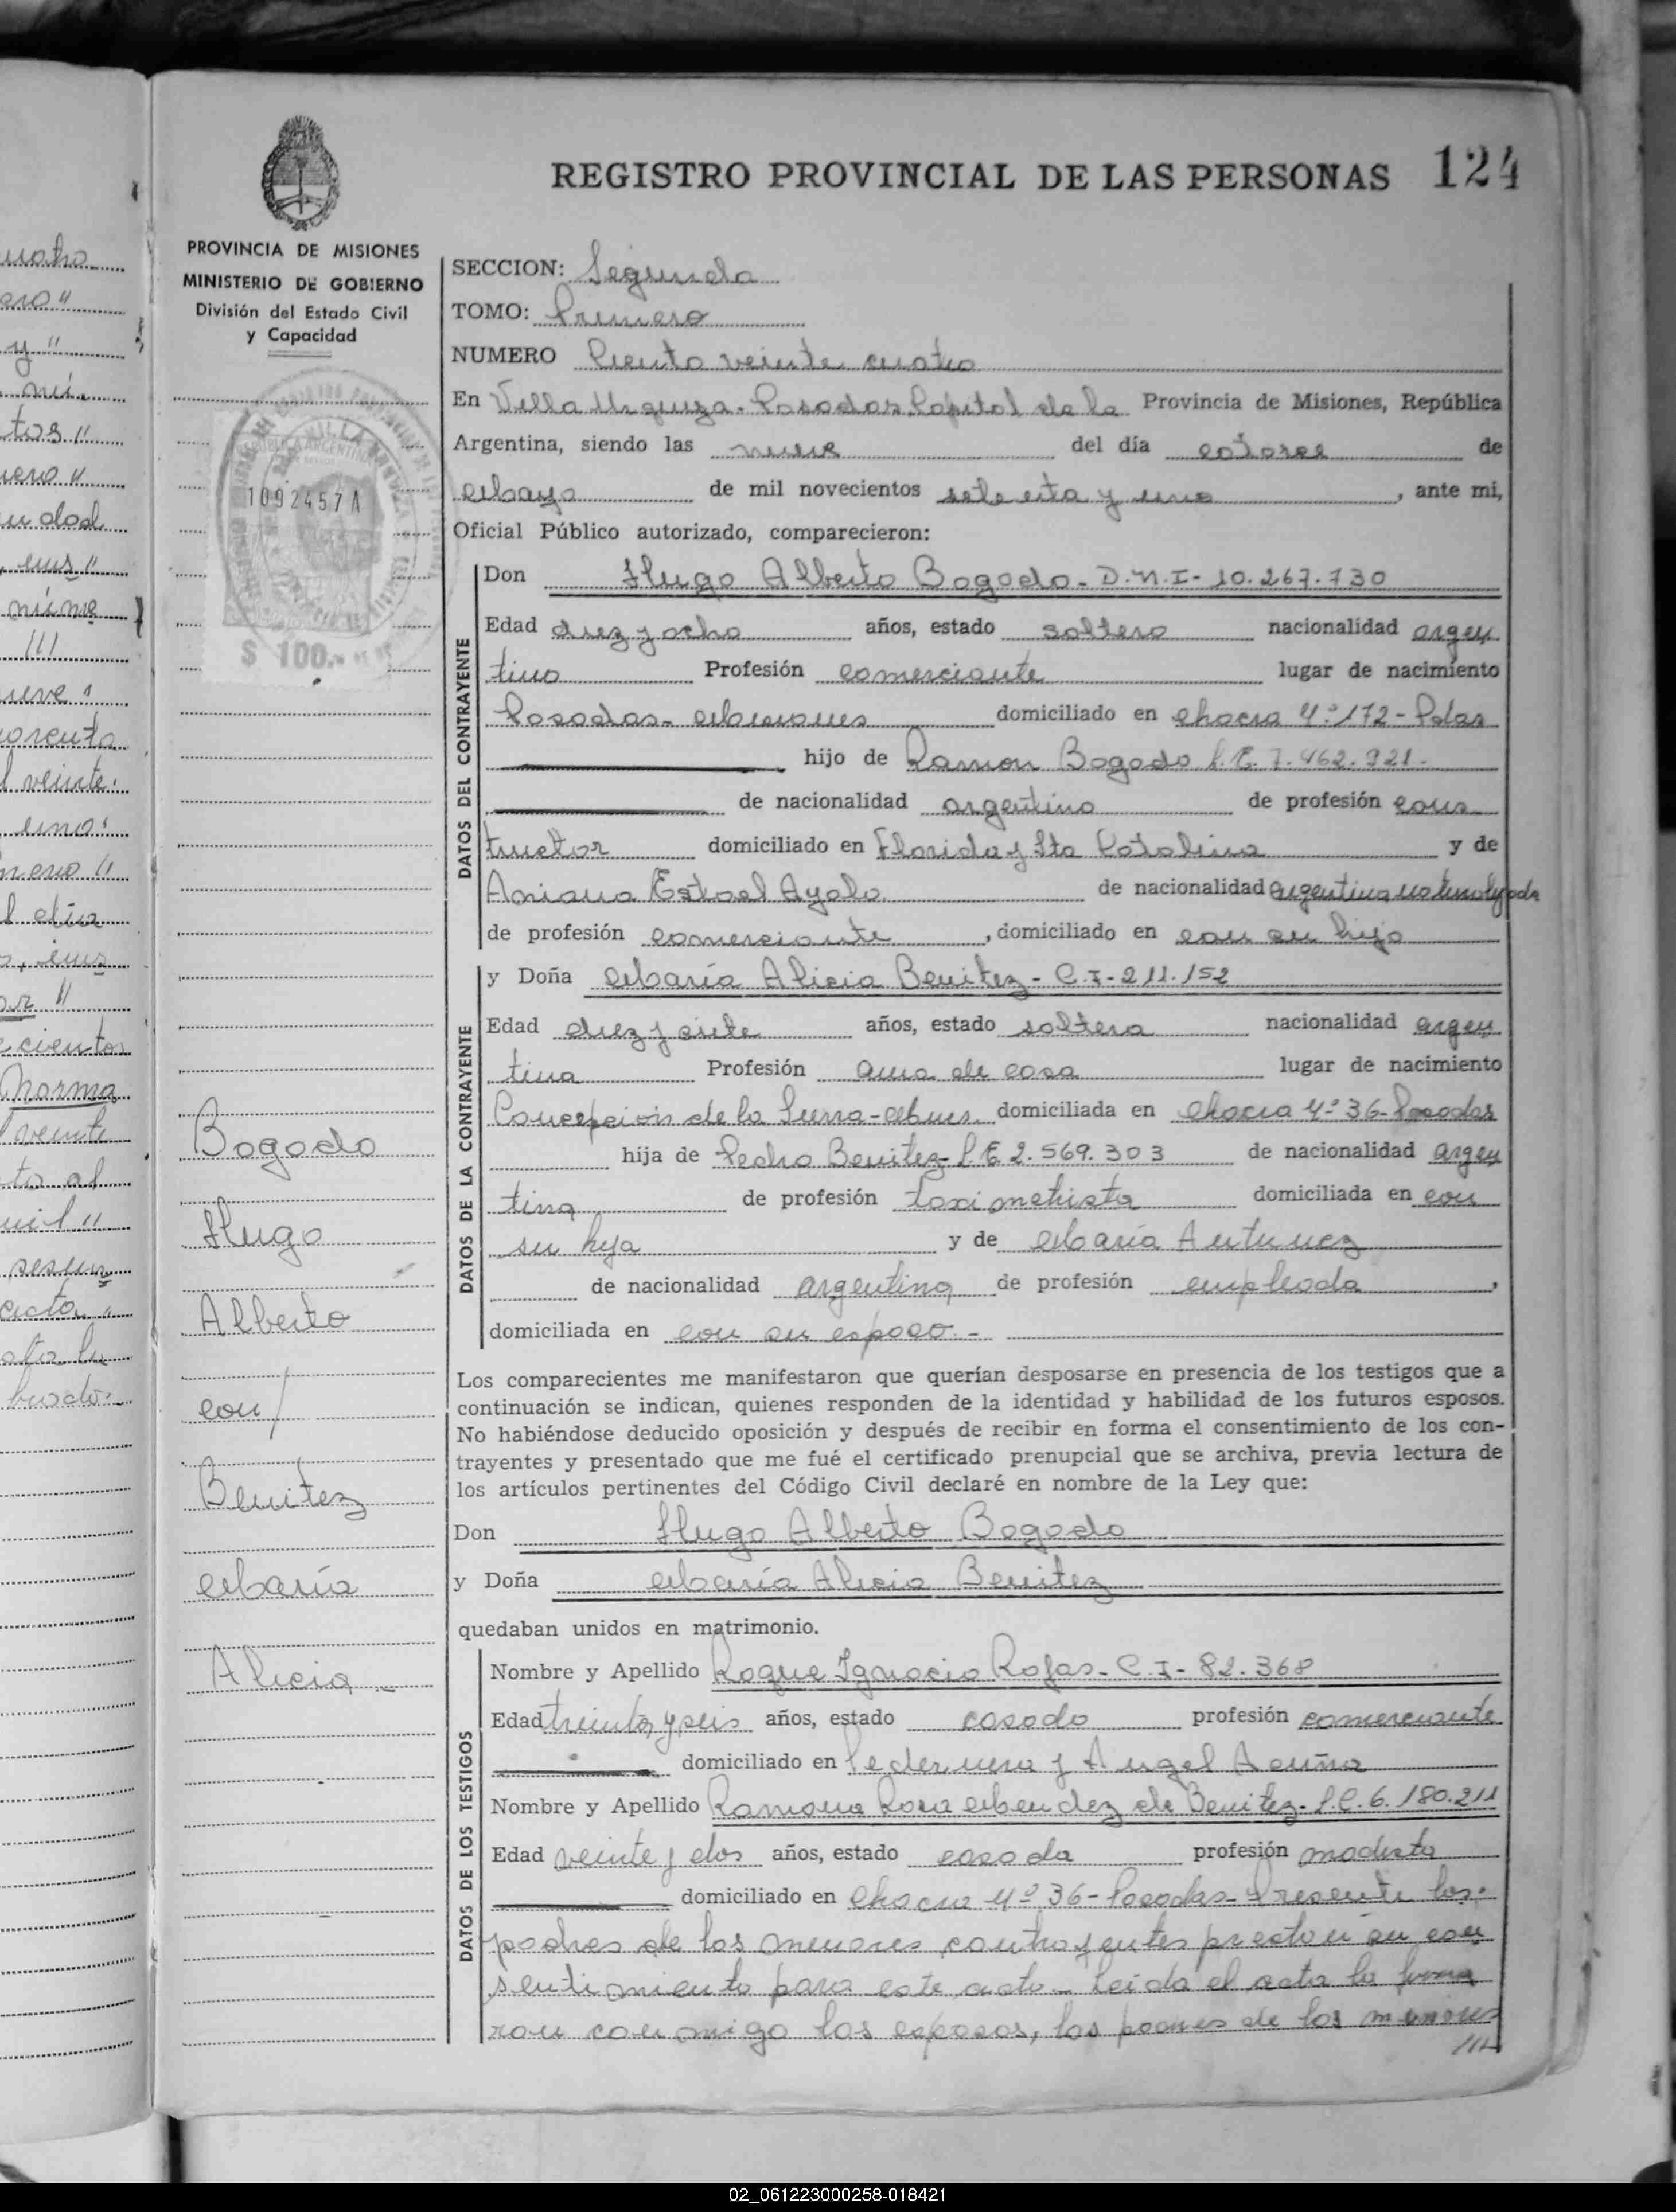 REGISTRO PROVINCIAL DE LAS PERSONAS 124
PROVINCIA DE MISIONES
MINISTERIO DE GOBIERNO
División del Estado Civil
y Capacidad
1092457A
$ 100.-
Bogado
Hugo
Alberto
con/
Benitez
María
Alicia -
SECCION: Segunda
TOMO: Primero
NUMERO Ciento veinte cuatro
En Villa Urquiza - Posadas Capital de la Provincia de Misiones, República
Argentina, siendo las nueve del día catorce de
Mayo de mil novecientos setenta y uno, ante mi,
Oficial Público autorizado, comparecieron:
DATOS DEL CONTRAYENTE
Don Hugo Alberto Bogado - D.N.I- 10.267.730
Edad diez y ocho años, estado soltero nacionalidad argen
tino Profesión comerciante lugar de nacimiento
Posadas - Misiones domiciliado en chacra Nº 172 - Pdas
hijo de Ramon Bogado L.E. 7.462.921.
de nacionalidad argentino de profesión cons
tructor domiciliado en Florida y Sta Catalina y de
Aniana Estael Ayala de nacionalidad argentina naturalizada
de profesión comerciante, domiciliado en con su hijo
DATOS DE LA CONTRAYENTE
y Doña María Alicia Benitez - C.I - 211.152
Edad diez y siete años, estado soltera nacionalidad argen
tina Profesión ama de casa lugar de nacimiento
Concepción de la Sierra - Mnes. domiciliada en chacra Nº 36 - Posadas
hija de Pedro Benitez - L.E 2.569.303 de nacionalidad argen
tina de profesión taximetrista domiciliada en con
su hija y de María Antunez
de nacionalidad argentina de profesión empleada,
domiciliada en con su esposo. -
Los comparecientes me manifestaron que querían desposarse en presencia de los testigos que a
continuación se indican, quienes responden de la identidad y habilidad de los futuros esposos.
No habiéndose deducido oposición y después de recibir en forma el consentimiento de los con-
trayentes y presentado que me fué el certificado prenupcial que se archiva, previa lectura de
los artículos pertinentes del Código Civil declaré en nombre de la Ley que:
Don Hugo Alberto Bogado
y Doña María Alicia Benitez
quedaban unidos en matrimonio.
DATOS DE LOS TESTIGOS
Nombre y Apellido Roque Ignacio Rojas - C.I - 82.368
Edad treinta y seis años, estado casado profesión comerciante
domiciliado en Pedernera y Angel Acuña
Nombre y Apellido Ramona Rosa Mendez de Benitez - L.C. 6.180.211
Edad veinte y dos años, estado casada profesión modista
domiciliado en Chacra Nº 36 - Posadas - Presente los
padres de los menores contrayentes prestan su con
sentimiento para este acto - Leída el acta la firma
ron conmigo los esposos, los padres de los menores
///
02_061223000258-018421